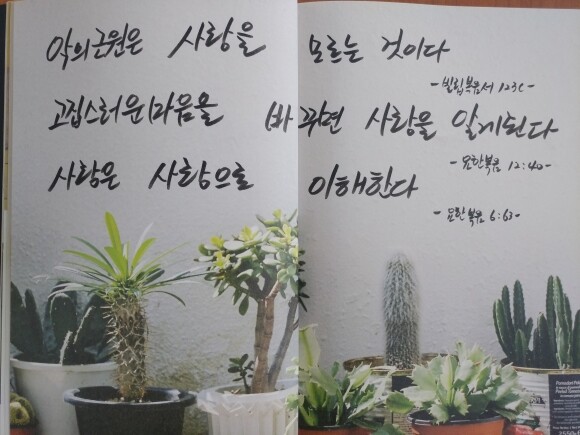 악의근원은 사랑을 모르는 것이다
-빌립복음서 123c-
고집스러운마음을 바꾸면 사랑을 알게된다
-요한복음 12:40-
사랑은 사랑으로 이해한다
-요한복음 6:63-